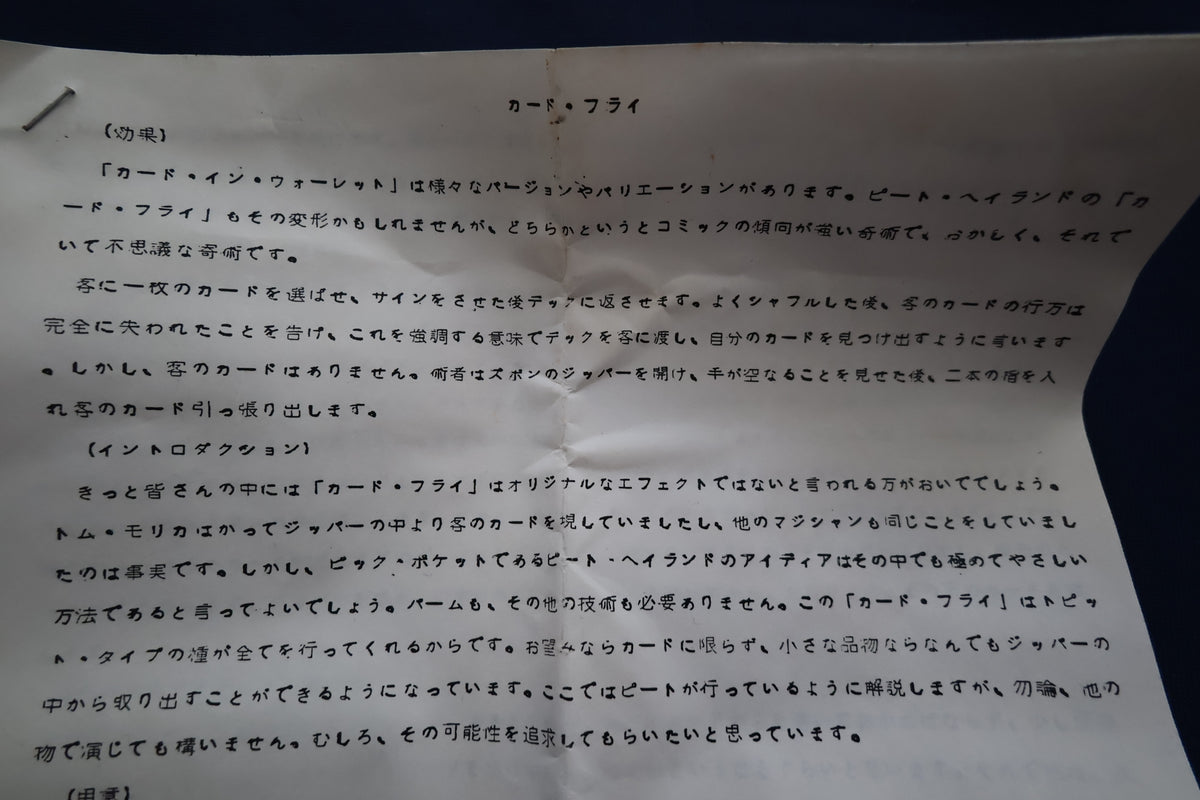 カード・フライ
(効果)
「カード・イン・ウォーレット」は様々なバージョンやバリエーションがあります。ピート・ヘイランドの「カ
ード・フライ」もその変形かもしれませんが、どちらかというとコミックの傾向が強い奇術で、おかしく、それで
いて不思議な奇術です。
客に一枚のカードを選ばせ、サインをさせた後デックに返させます。よくシャフルした後、客のカードの行方は
完全に失われたことを告げ、これを強調する意味でデックを客に渡し、自分のカードを見つけ出すように言います
。しかし、客のカードはありません。術者はズボンのジッパーを開け、手が空なることを見せた後、二本の指を入
れ客のカード引っ張り出します。
(イントロダクション)
きっと皆さんの中には「カード・フライ」はオリジナルなエフェクトではないと言われる方がおいででしょう。
トム・モリカはかってジッパーの中より客のカードを現していましたし、他のマジシャンも同じことをしていまし
たのは事実です。しかし、ピック・ポケットであるピート・ヘイランドのアイディアはその中でも極めてやさしい
方法であると言ってよいでしょう。パームも、その他の技術も必要ありません。この「カード・フライ」はトピッ
ト・タイプの種が全てを行ってくれるからです。お望みならカードに限らず、小さな品物ならなんでもジッパーの
中から取り出すことができるようになっています。ここではピートが行っているように解説しますが、勿論、他の
物で演じても構いません。むしろ、その可能性を追求してもらいたいと思っています。
(用意)